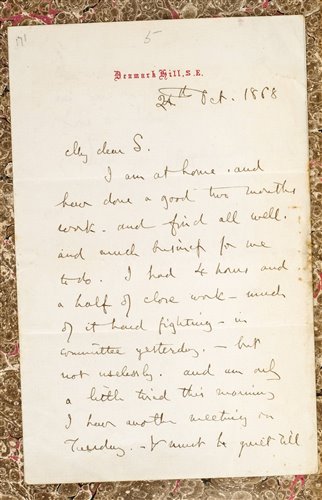 171
5
Denmark Hill, S.E.
24th Oct. 1868
My dear S.
I am at home. and
have done a good two months
work. and find all well.
and much business for me
to do. I had 4 hours and
a half of close work - much
of it hard fighting - in
committee yesterday. - but
not uselessly. and am only
a little tired this morning
I have another meeting on
Tuesday. - & must be quiet till